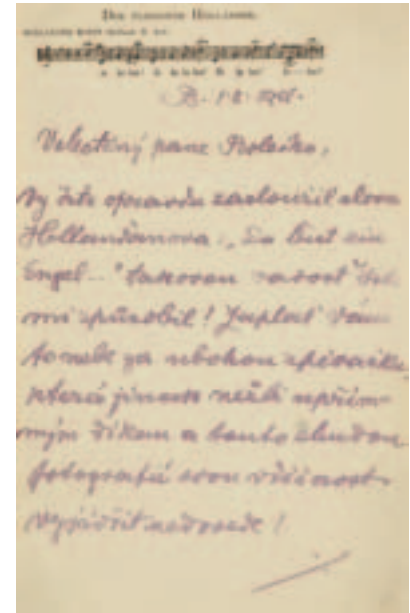 DER FLIEGENDE HOLLÄNDER.
Velectěný pane Boleško,
Vy jste opravdu zasloužil slova
Holländrova: „Du bist ein
Engel –" takovou radost jste
mi způsobil! Zaplať Vám
to nebe za ubohou zpěvačku,
která jinak nežli upřím-
ným díkem a touto chudou
fotografií svou vděčnost
vyjádřit nedovede!